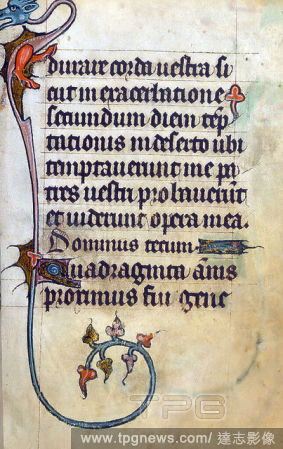 durare corda vestra si
cut in exacerbatione
secundum diem tēp
tationis in deserto ubi
temptaverunt me pa
tres vestri probaverūt
et viderunt opera mea.
Dominus tecum
Quadraginta ānis
proximus fui gene
TPG
www.tpgnews.com/達志影像